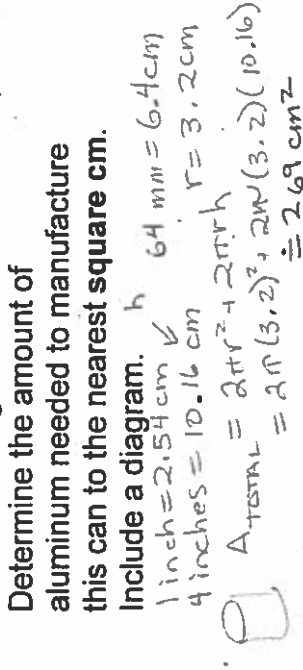 Determine the amount of
aluminum needed to manufacture
this can to the nearest square cm.
Include a diagram. h 64 mm = 6.4cm
1 inch = 2.54 cm
4 inches = 10.16 cm r = 3.2cm
A TOTAL = 2πr² + 2πrh
= 2π(3.2)² + 2π(3.2)(10.16)
≐ 269 cm²